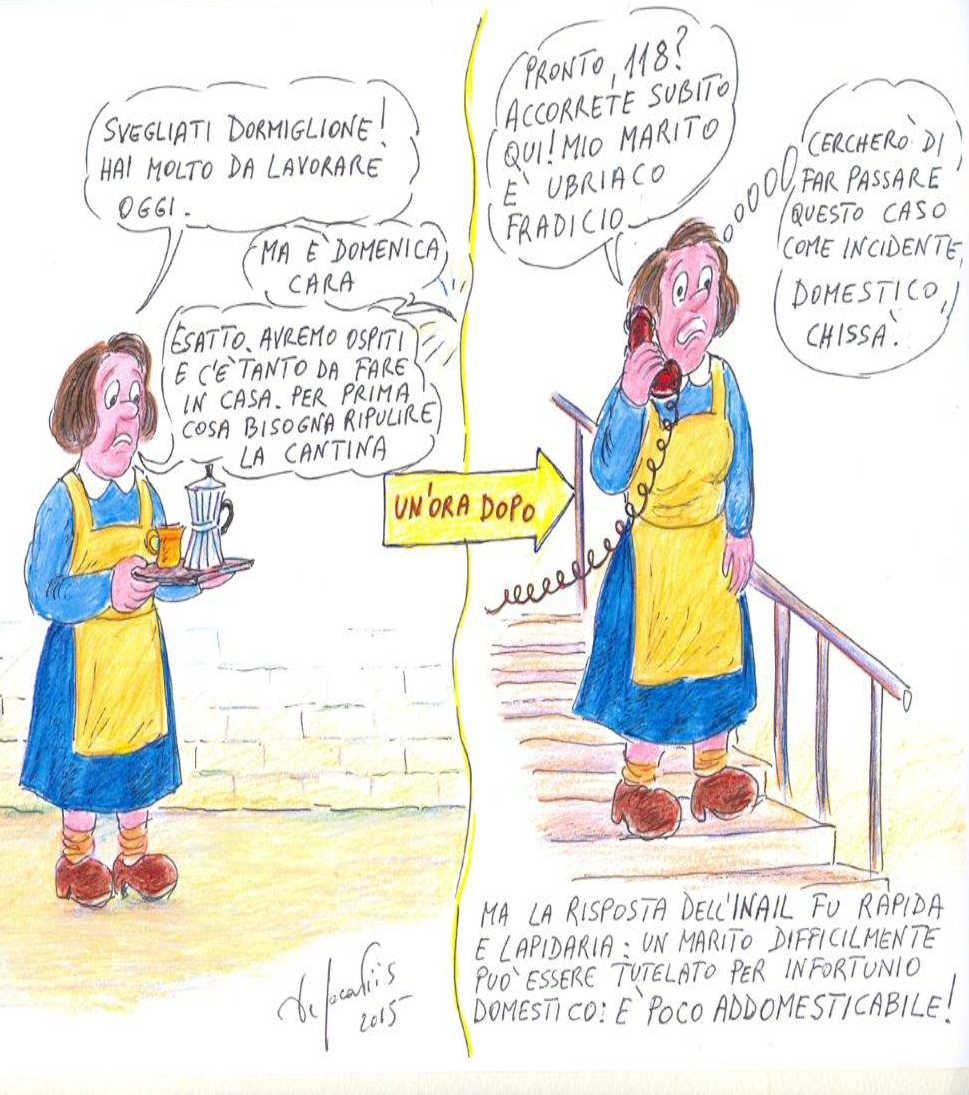 SVEGLIATI DORMIGLIONE!
HAI MOLTO DA LAVORARE
OGGI.
MA È DOMENICA,
CARA
ESATTO. AVREMO OSPITI
E C'È TANTO DA FARE
IN CASA. PER PRIMA
COSA BISOGNA RIPULIRE
LA CANTINA
UN'ORA DOPO
PRONTO, 118?
ACCORRETE SUBITO
QUI! MIO MARITO
E' UBRIACO
FRADICIO
CERCHERÒ DI
FAR PASSARE
QUESTO CASO
COME INCIDENTE
DOMESTICO,
CHISSÀ!
MA LA RISPOSTA DELL'INAIL FU RAPIDA
E LAPIDARIA: UN MARITO DIFFICILMENTE
PUO' ESSERE TUTELATO PER INFORTUNIO
DOMESTICO: E' POCO ADDOMESTICABILE!
2015